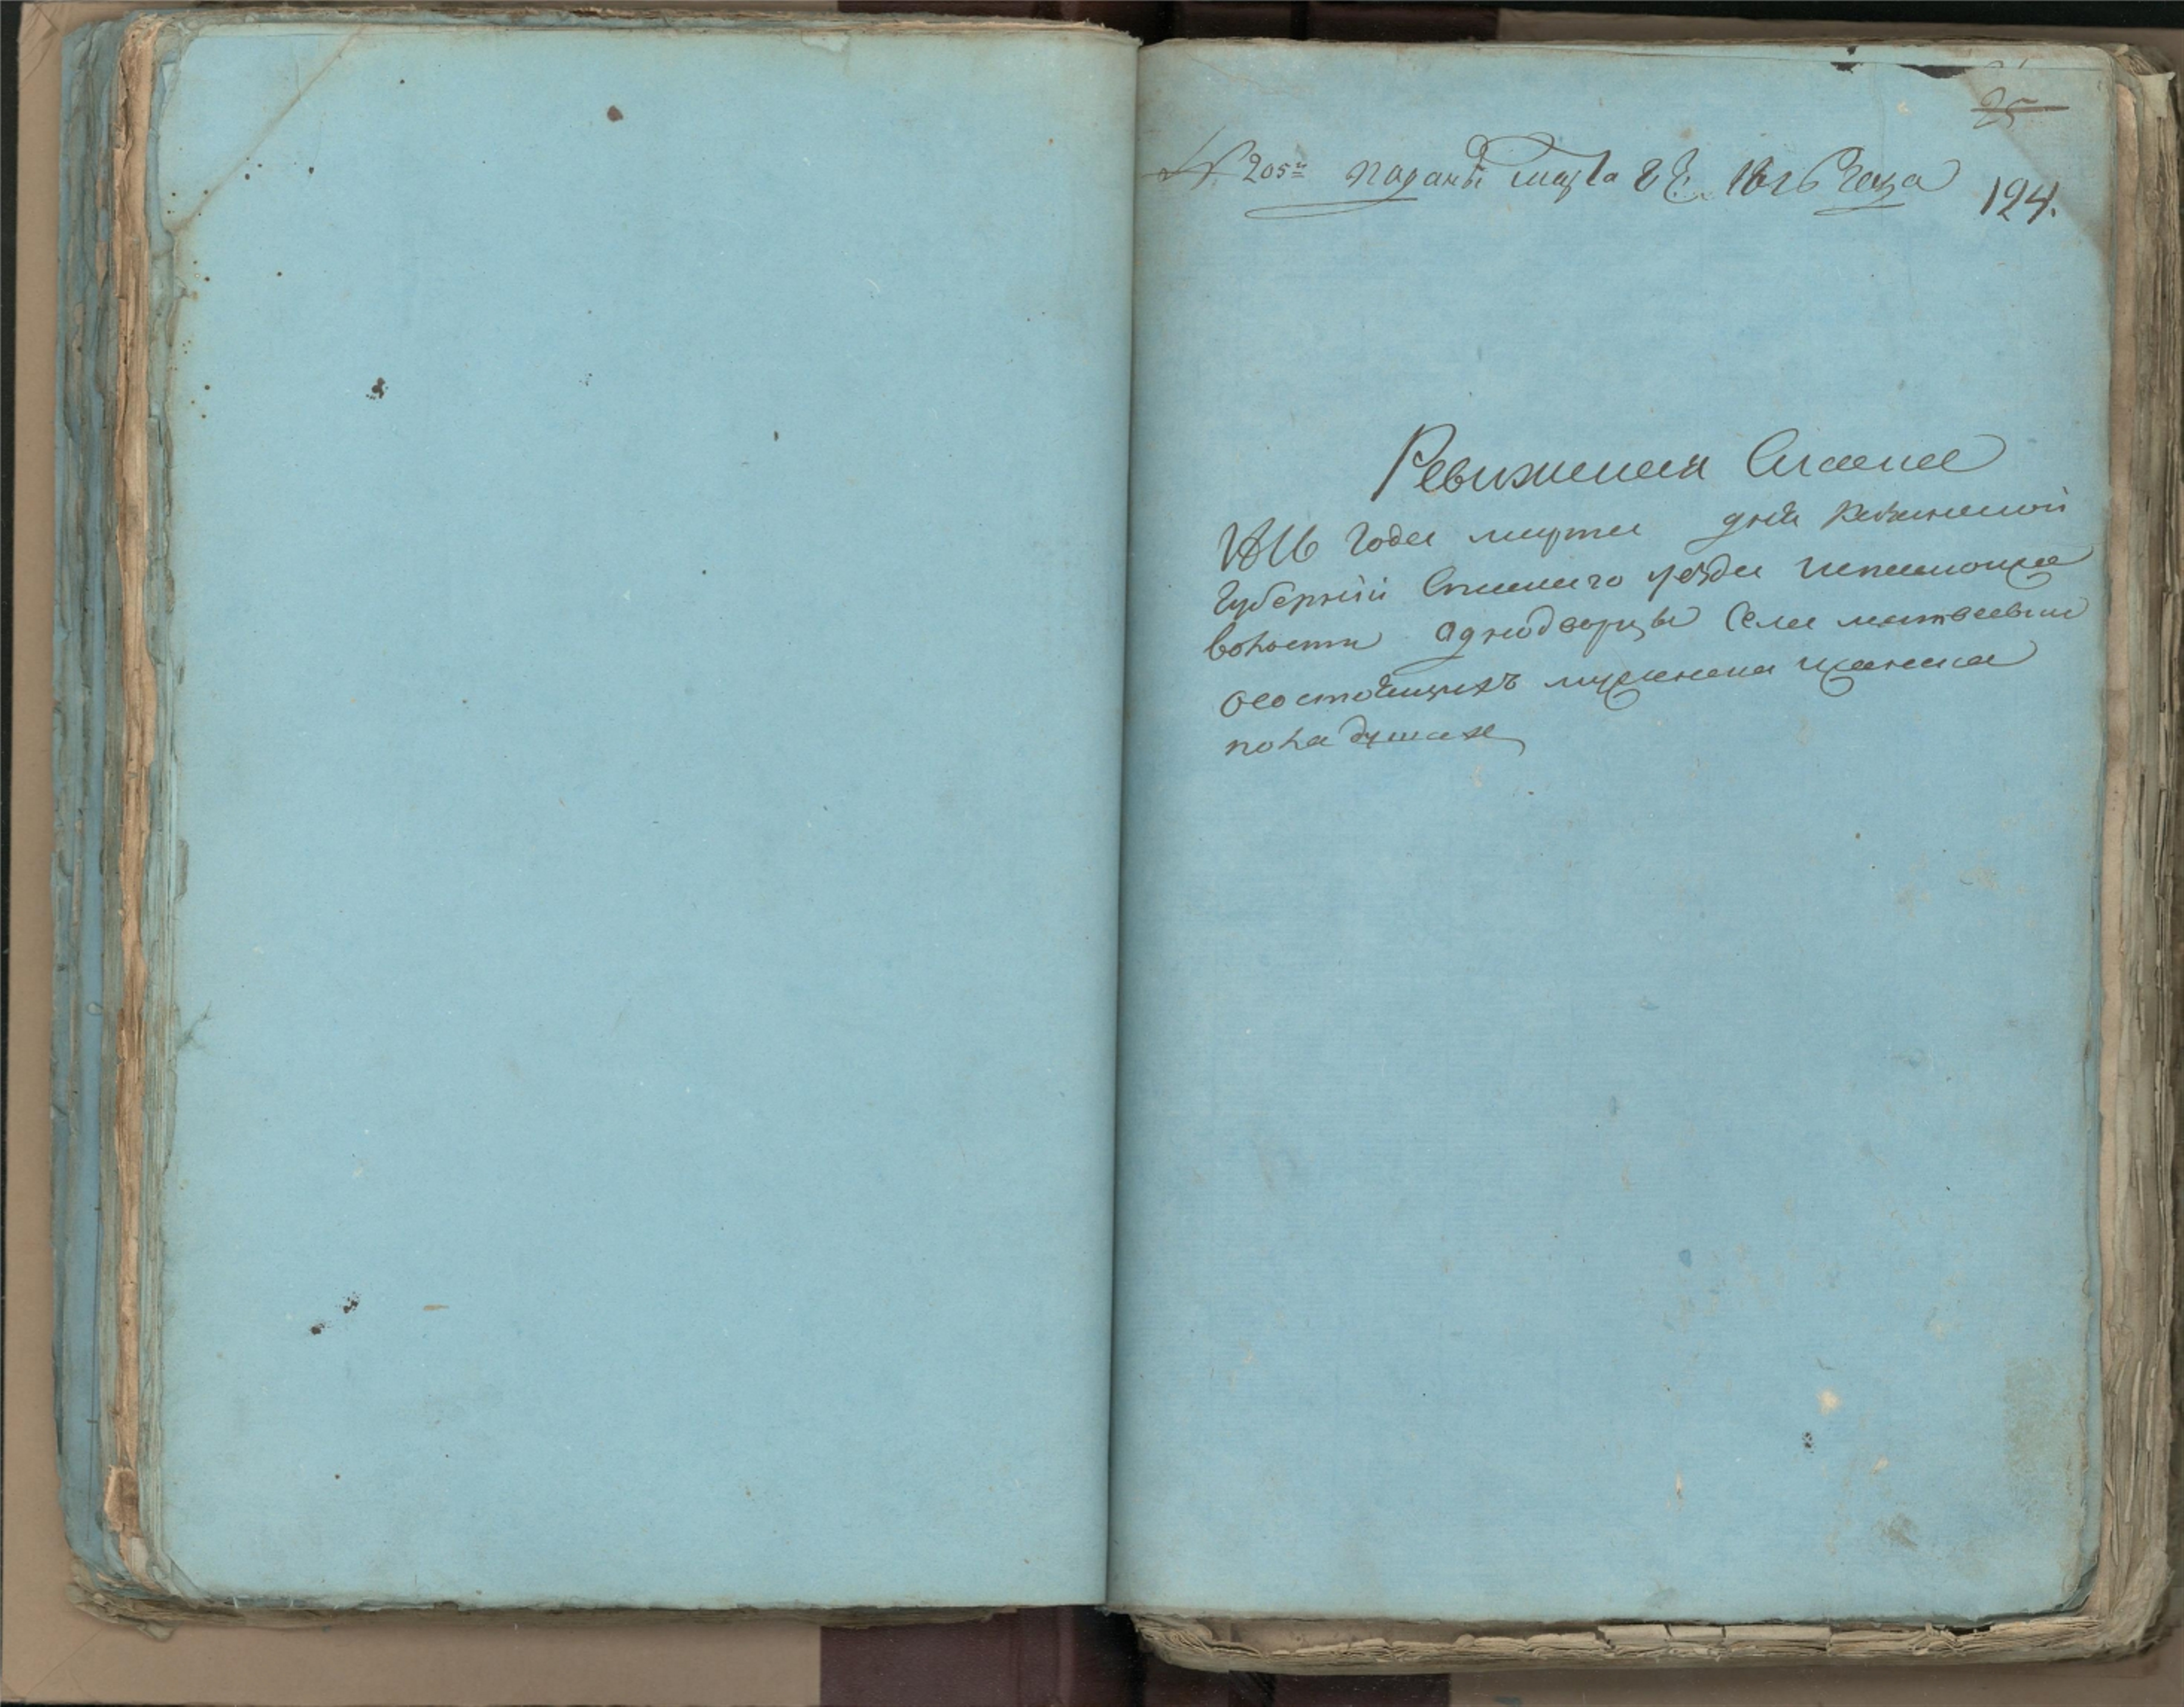 25
№ 205й подана марта 8 1816 года
124.
Ревижская Скаска
1816 года марта дня Рязанской
губернии Спаского уезда
волости однодворцы Села матвеевки
осостоящихъ мужеска женска
пола душах